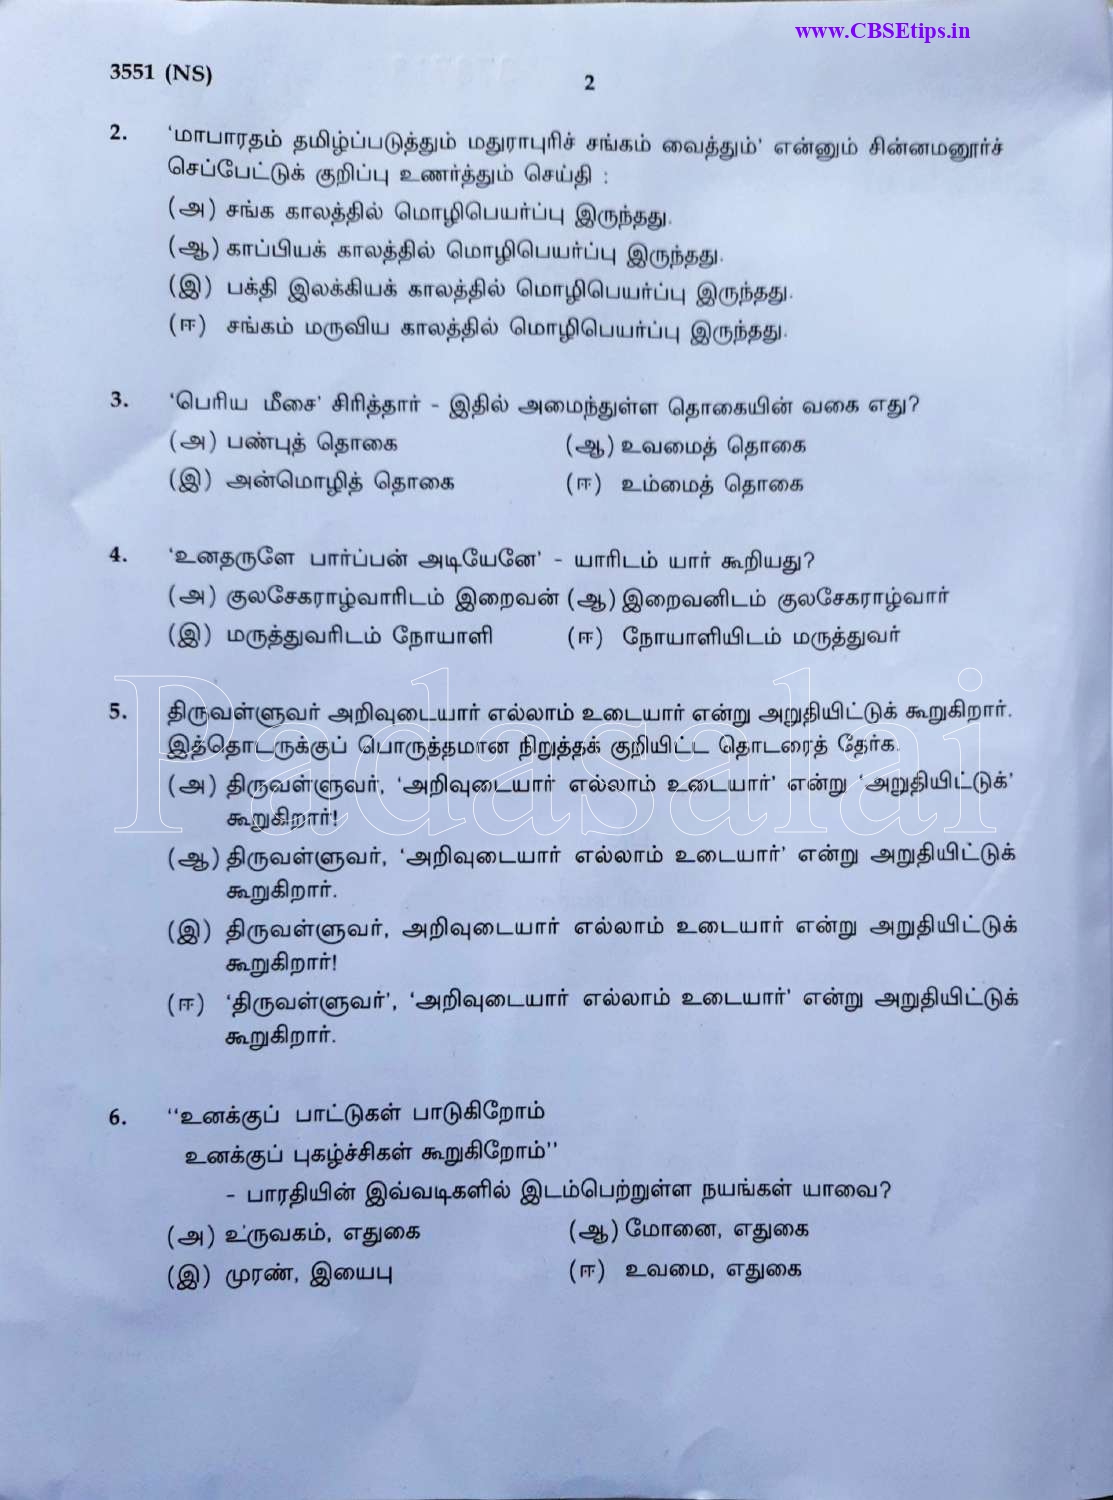 www.CBSEtips.in
3551 (NS)
2
2. 'மாபாரதம் தமிழ்ப்படுத்தும் மதுராபுரிச் சங்கம் வைத்தும்' என்னும் சின்னமனூர்ச்
செப்பேட்டுக் குறிப்பு உணர்த்தும் செய்தி :
(அ) சங்க காலத்தில் மொழிபெயர்ப்பு இருந்தது.
(ஆ) காப்பியக் காலத்தில் மொழிபெயர்ப்பு இருந்தது.
(இ) பக்தி இலக்கியக் காலத்தில் மொழிபெயர்ப்பு இருந்தது.
(ஈ) சங்கம் மருவிய காலத்தில் மொழிபெயர்ப்பு இருந்தது.
3. 'பெரிய மீசை' சிரித்தார் - இதில் அமைந்துள்ள தொகையின் வகை எது?
(அ) பண்புத் தொகை (ஆ) உவமைத் தொகை
(இ) அன்மொழித் தொகை (ஈ) உம்மைத் தொகை
4. 'உனதருளே பார்ப்பன் அடியேனே' - யாரிடம் யார் கூறியது?
(அ) குலசேகராழ்வாரிடம் இறைவன் (ஆ) இறைவனிடம் குலசேகராழ்வார்
(இ) மருத்துவரிடம் நோயாளி (ஈ) நோயாளியிடம் மருத்துவர்
5. திருவள்ளுவர் அறிவுடையார் எல்லாம் உடையார் என்று அறுதியிட்டுக் கூறுகிறார்.
இத்தொடருக்குப் பொருத்தமான நிறுத்தக் குறியிட்ட தொடரைத் தேர்க.
(அ) திருவள்ளுவர், 'அறிவுடையார் எல்லாம் உடையார்' என்று 'அறுதியிட்டுக்'
கூறுகிறார்!
(ஆ) திருவள்ளுவர், 'அறிவுடையார் எல்லாம் உடையார்' என்று அறுதியிட்டுக்
கூறுகிறார்.
(இ) திருவள்ளுவர், அறிவுடையார் எல்லாம் உடையார் என்று அறுதியிட்டுக்
கூறுகிறார்!
(ஈ) 'திருவள்ளுவர்', 'அறிவுடையார் எல்லாம் உடையார்' என்று அறுதியிட்டுக்
கூறுகிறார்.
Padasalai
6. "உனக்குப் பாட்டுகள் பாடுகிறோம்
உனக்குப் புகழ்ச்சிகள் கூறுகிறோம்"
- பாரதியின் இவ்வடிகளில் இடம்பெற்றுள்ள நயங்கள் யாவை?
(அ) உருவகம், எதுகை (ஆ) மோனை, எதுகை
(இ) முரண், இயைபு (ஈ) உவமை, எதுகை